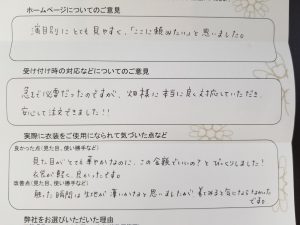 ホームページについてのご意見
演目別にとても見やすく、「ここに頼みたい」と思いました。
受け付け時の対応などについてのご意見
急きょ必要だったのですが、畑様に本当に良く対応していただき、
安心して注文できました!!
実際に衣装をご使用になられて気づいた点など
良かった点(見た目、使い勝手など)
見た目がとても華やかなのに、この金額でいいの?とびっくりしました!
衣装が軽く、良かったです。
改善点(見た目、使い勝手など)
触った瞬間は生地が薄いかなと思いましたが着てみると気にならなかった
です。
弊社をお選びいただいた理由